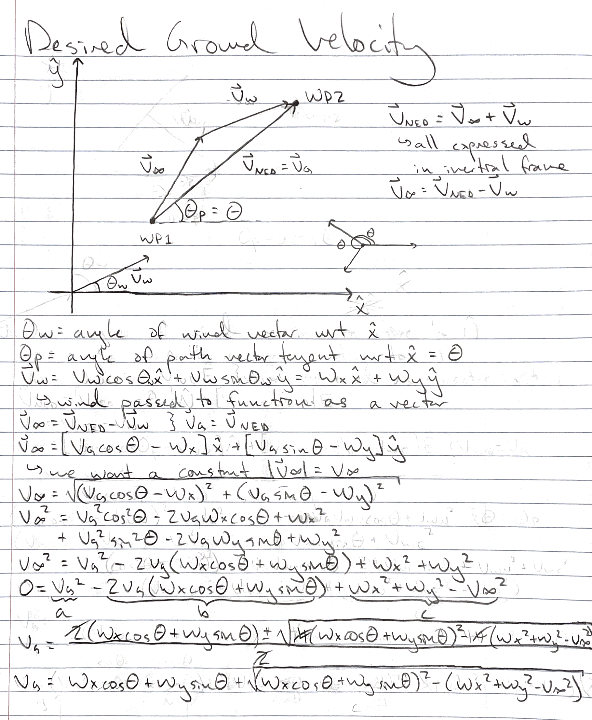 Desired Ground Velocity
ŷ
V⃗w
WP2
V⃗∞
V⃗NED = V⃗g
θp = θ
WP1
θw
V⃗w
x̂
θ
θ
V⃗NED = V⃗∞ + V⃗w
↳ all expressed
in inertial frame
V⃗∞ = V⃗NED - V⃗w
θw = angle of wind vector wrt x̂
θp = angle of path vector tangent wrt x̂ = θ
V⃗w = Vw cosθw x̂ + Vw sinθw ŷ = Wx x̂ + Wy ŷ
↳ wind passed to function as a vector
V⃗∞ = V⃗NED - V⃗w } V⃗g = V⃗NED
V⃗∞ = [Vg cosθ - Wx] x̂ + [Vg sinθ - Wy] ŷ
↳ we want a constant |V⃗∞| = V∞
V∞ = √((Vg cosθ - Wx)² + (Vg sinθ - Wy)²)
V∞² = Vg² cos²θ - 2VgWx cosθ + Wx²
+ Vg² sin²θ - 2VgWy sinθ + Wy²
V∞² = Vg² - 2Vg(Wx cosθ + Wy sinθ) + Wx² + Wy²
0 = Vg² - 2Vg(Wx cosθ + Wy sinθ) + Wx² + Wy² - V∞²
a b c
Vg = 2(Wx cosθ + Wy sinθ) ± √(4(Wx cosθ + Wy sinθ)² - 4(Wx² + Wy² - V∞²))
2
Vg = Wx cosθ + Wy sinθ + √((Wx cosθ + Wy sinθ)² - (Wx² + Wy² - V∞²))